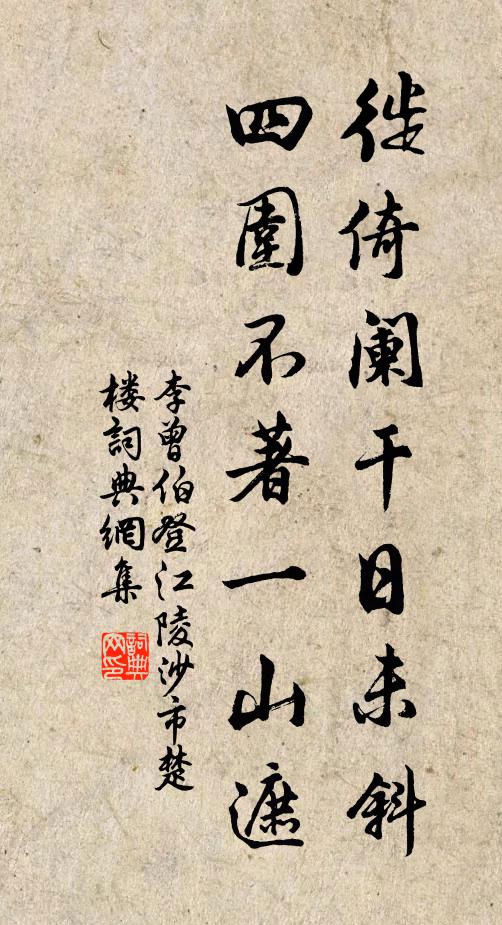 徙倚阑干日未斜
四圍不著一山遮
李曾伯登江陵沙市楚
楼詞典網集
詞典网印